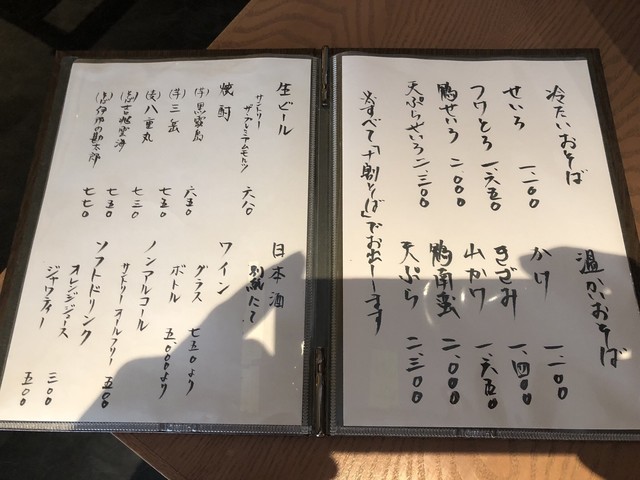 冷たいおそば
せいろ 一、二〇〇
フワとろ 一、六五〇
鴨せいろ 二、〇〇〇
天ぷらせいろ 二、三〇〇
※すべて「十割そば」でお出しします
温かいおそば
かけ 一、二〇〇
きざみ 一、四〇〇
山かけ 一、六五〇
鴨南蛮 二、〇〇〇
天ぷら 二、三〇〇
生ビール
サントリー
ザ・プレミアムモルツ 六八〇
焼酎
(芋)黒霧島 六五〇
(芋)三岳 七五〇
(麦)八重丸 七三〇
雲海 七五〇
勘太郎 七七〇
日本酒
別紙にて
ワイン
グラス 七五〇より
ボトル 五、〇〇〇より
ノンアルコール
サントリーオールフリー 五〇〇
ソフトドリンク
オレンジジュース 三〇〇
ジャワティー 五〇〇